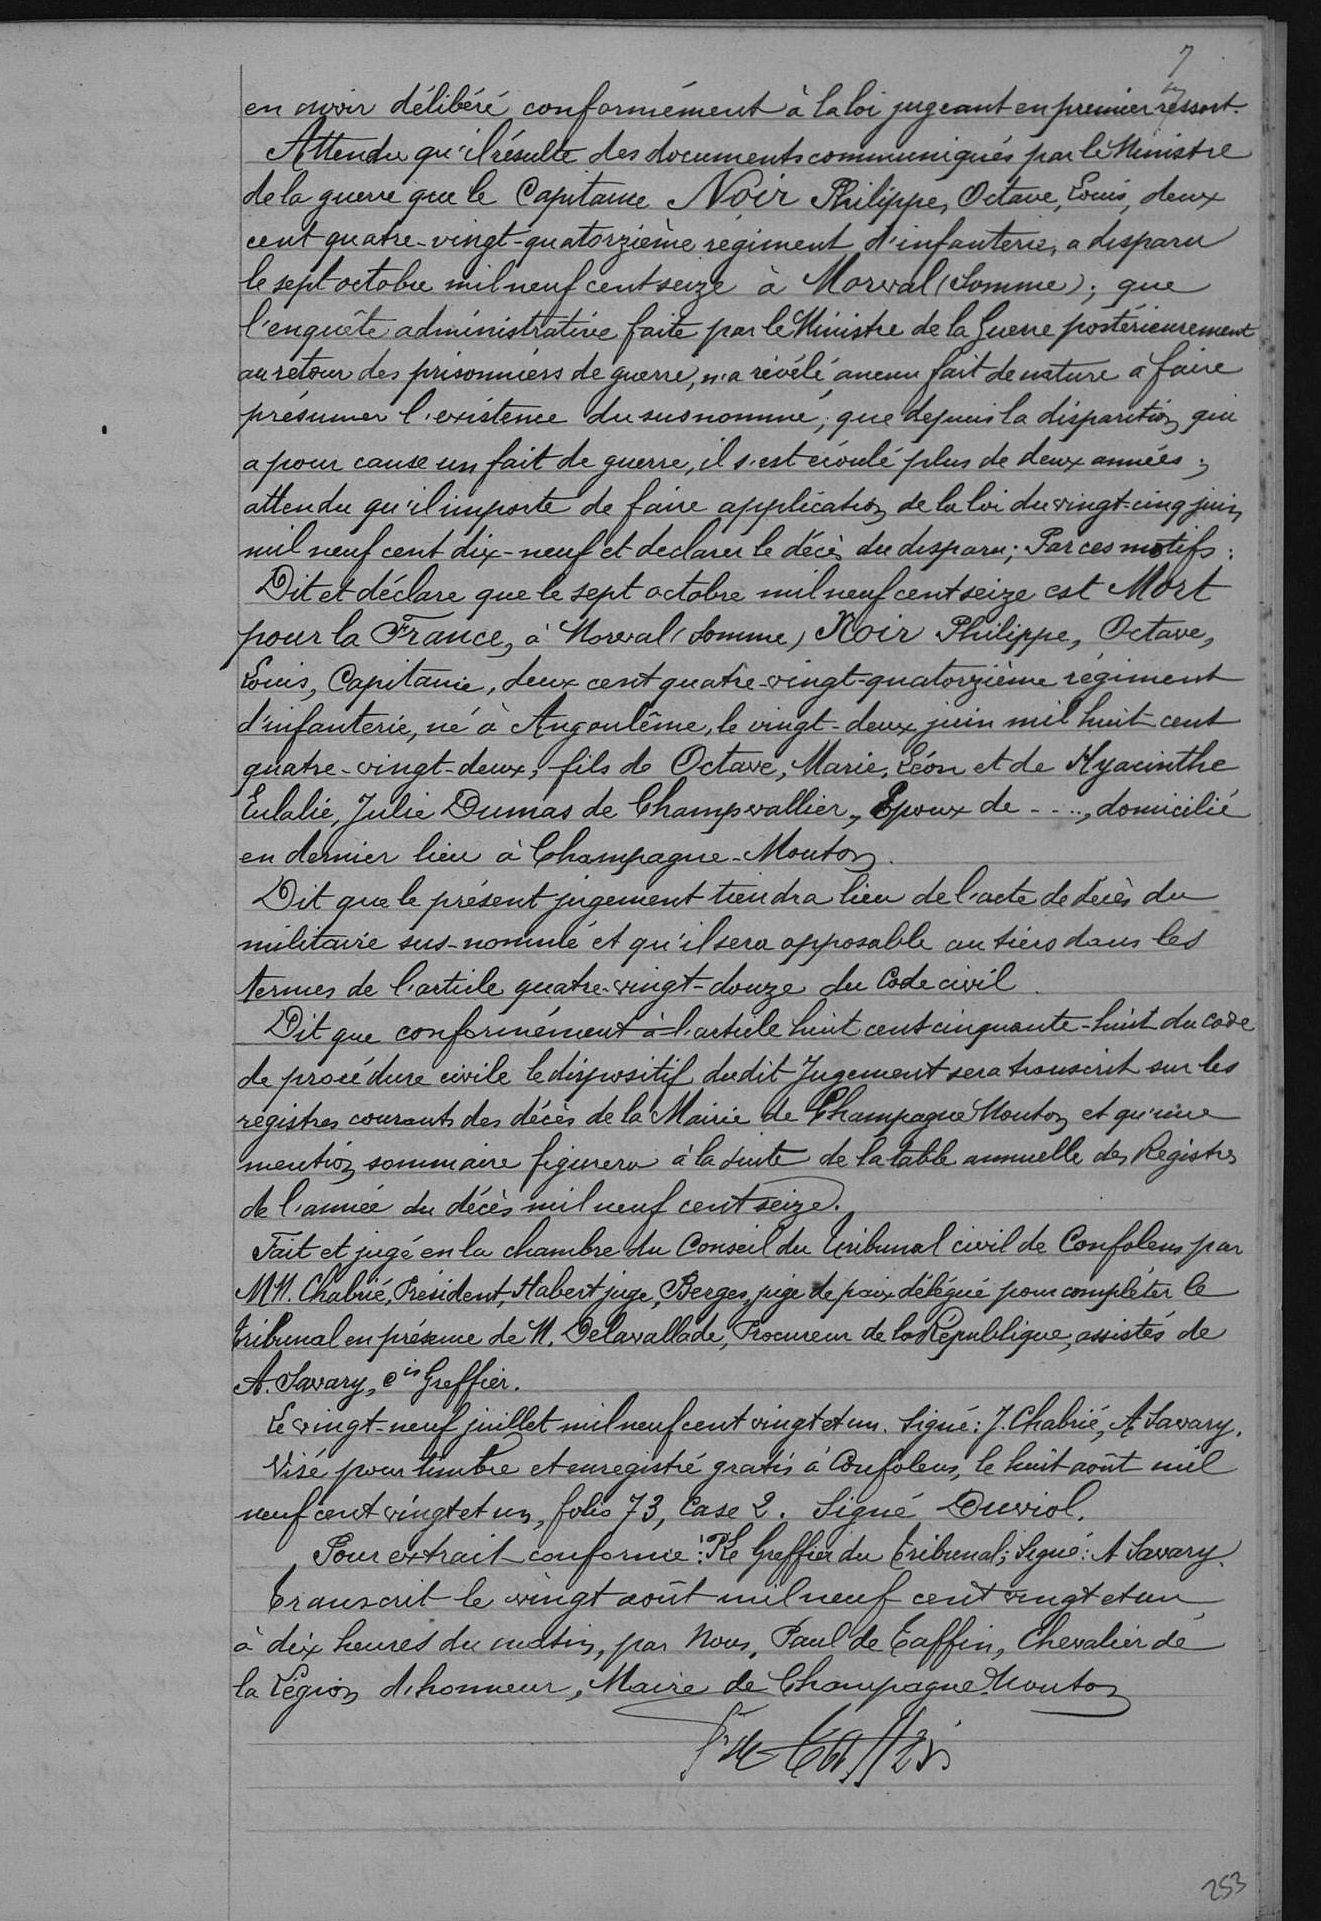 7
en avoir délibéré conformément à la loi jugeant en premier ressort.
Attendu qu'il résulte des documents communiqués par le Ministre
de la guerre que le Capitaine Noir Philippe, Octave, Louis, deux
cent quatre-vingt-quatorzième régiment d'infanterie, a disparu
le sept octobre mil neuf cent seize à Morval (Somme); que
l'enquête administrative faite par le Ministre de la Guerre postérieurement
au retour des prisonniers de guerre, n'a révélé aucun fait de nature à faire
présumer l'existence du susnommé; que depuis la disparition qui
a pour cause un fait de guerre, il s'est écoulé plus de deux années;
attendu qu'il importe de faire application de la loi du vingt-cinq juin
mil neuf cent dix-neuf et declarer le décès du disparu; Par ces motifs:
Dit et déclare que le sept octobre mil neuf cent seize est Mort
pour la France, à Morval (Somme) Noir Philippe, Octave,
Louis, Capitaine, deux cent quatre-vingt-quatorzième régiment
d'infanterie, né à Angoulême, le vingt-deux juin mil huit cent
quatre-vingt-deux, fils de Octave, Marie, Léon et de Hyacinthe
Eulalie, Julie Dumas de Champvallier, Epoux de - - .., domicilié
en dernier lieu à Champagne-Mouton.
Dit que le présent jugement tiendra lieu de l'acte de décès du
militaire sus-nommé et qu'il sera opposable au tiers dans les
termes de l'article quatre-vingt-douze du Code civil.
Dit que conformément à l'article huit cent cinquante-huit du code
de procédure civile le dispositif dudit Jugement sera transcrit sur les
registres courants des décès de la Mairie de Champagne Mouton et qu'une
mention sommaire figurera à la suite de la table annuelle des Registres
de l'année du décès mil neuf cent seize.
Fait et jugé en la chambre du Conseil du Tribunal civil de Confolens par
MM. Chabrié, Président, Habert juge, Berges, juge de paix délégué pour compléter le
Tribunal en présence de M. Delavallade, Procureur de la République, assistés de
A. Savary, cis Greffier.
Le vingt-neuf juillet mil neuf cent vingt et un. Signé: J. Chabrié, A Savary.
Visé pour timbre et enregistré gratis à Confolens, le huit août mil
neuf cent vingt et un, folio 73, Case 2. Signé Duviol.
Pour extrait conforme: Le Greffier du Tribunal; Signé: A Savary.
Transcrit le vingt août mil neuf cent vingt et un
à dix heures du matin, par Nous, Paul de Taffin, Chevalier de
la Légion d'honneur, Maire de Champagne Mouton
P de Taffin
253